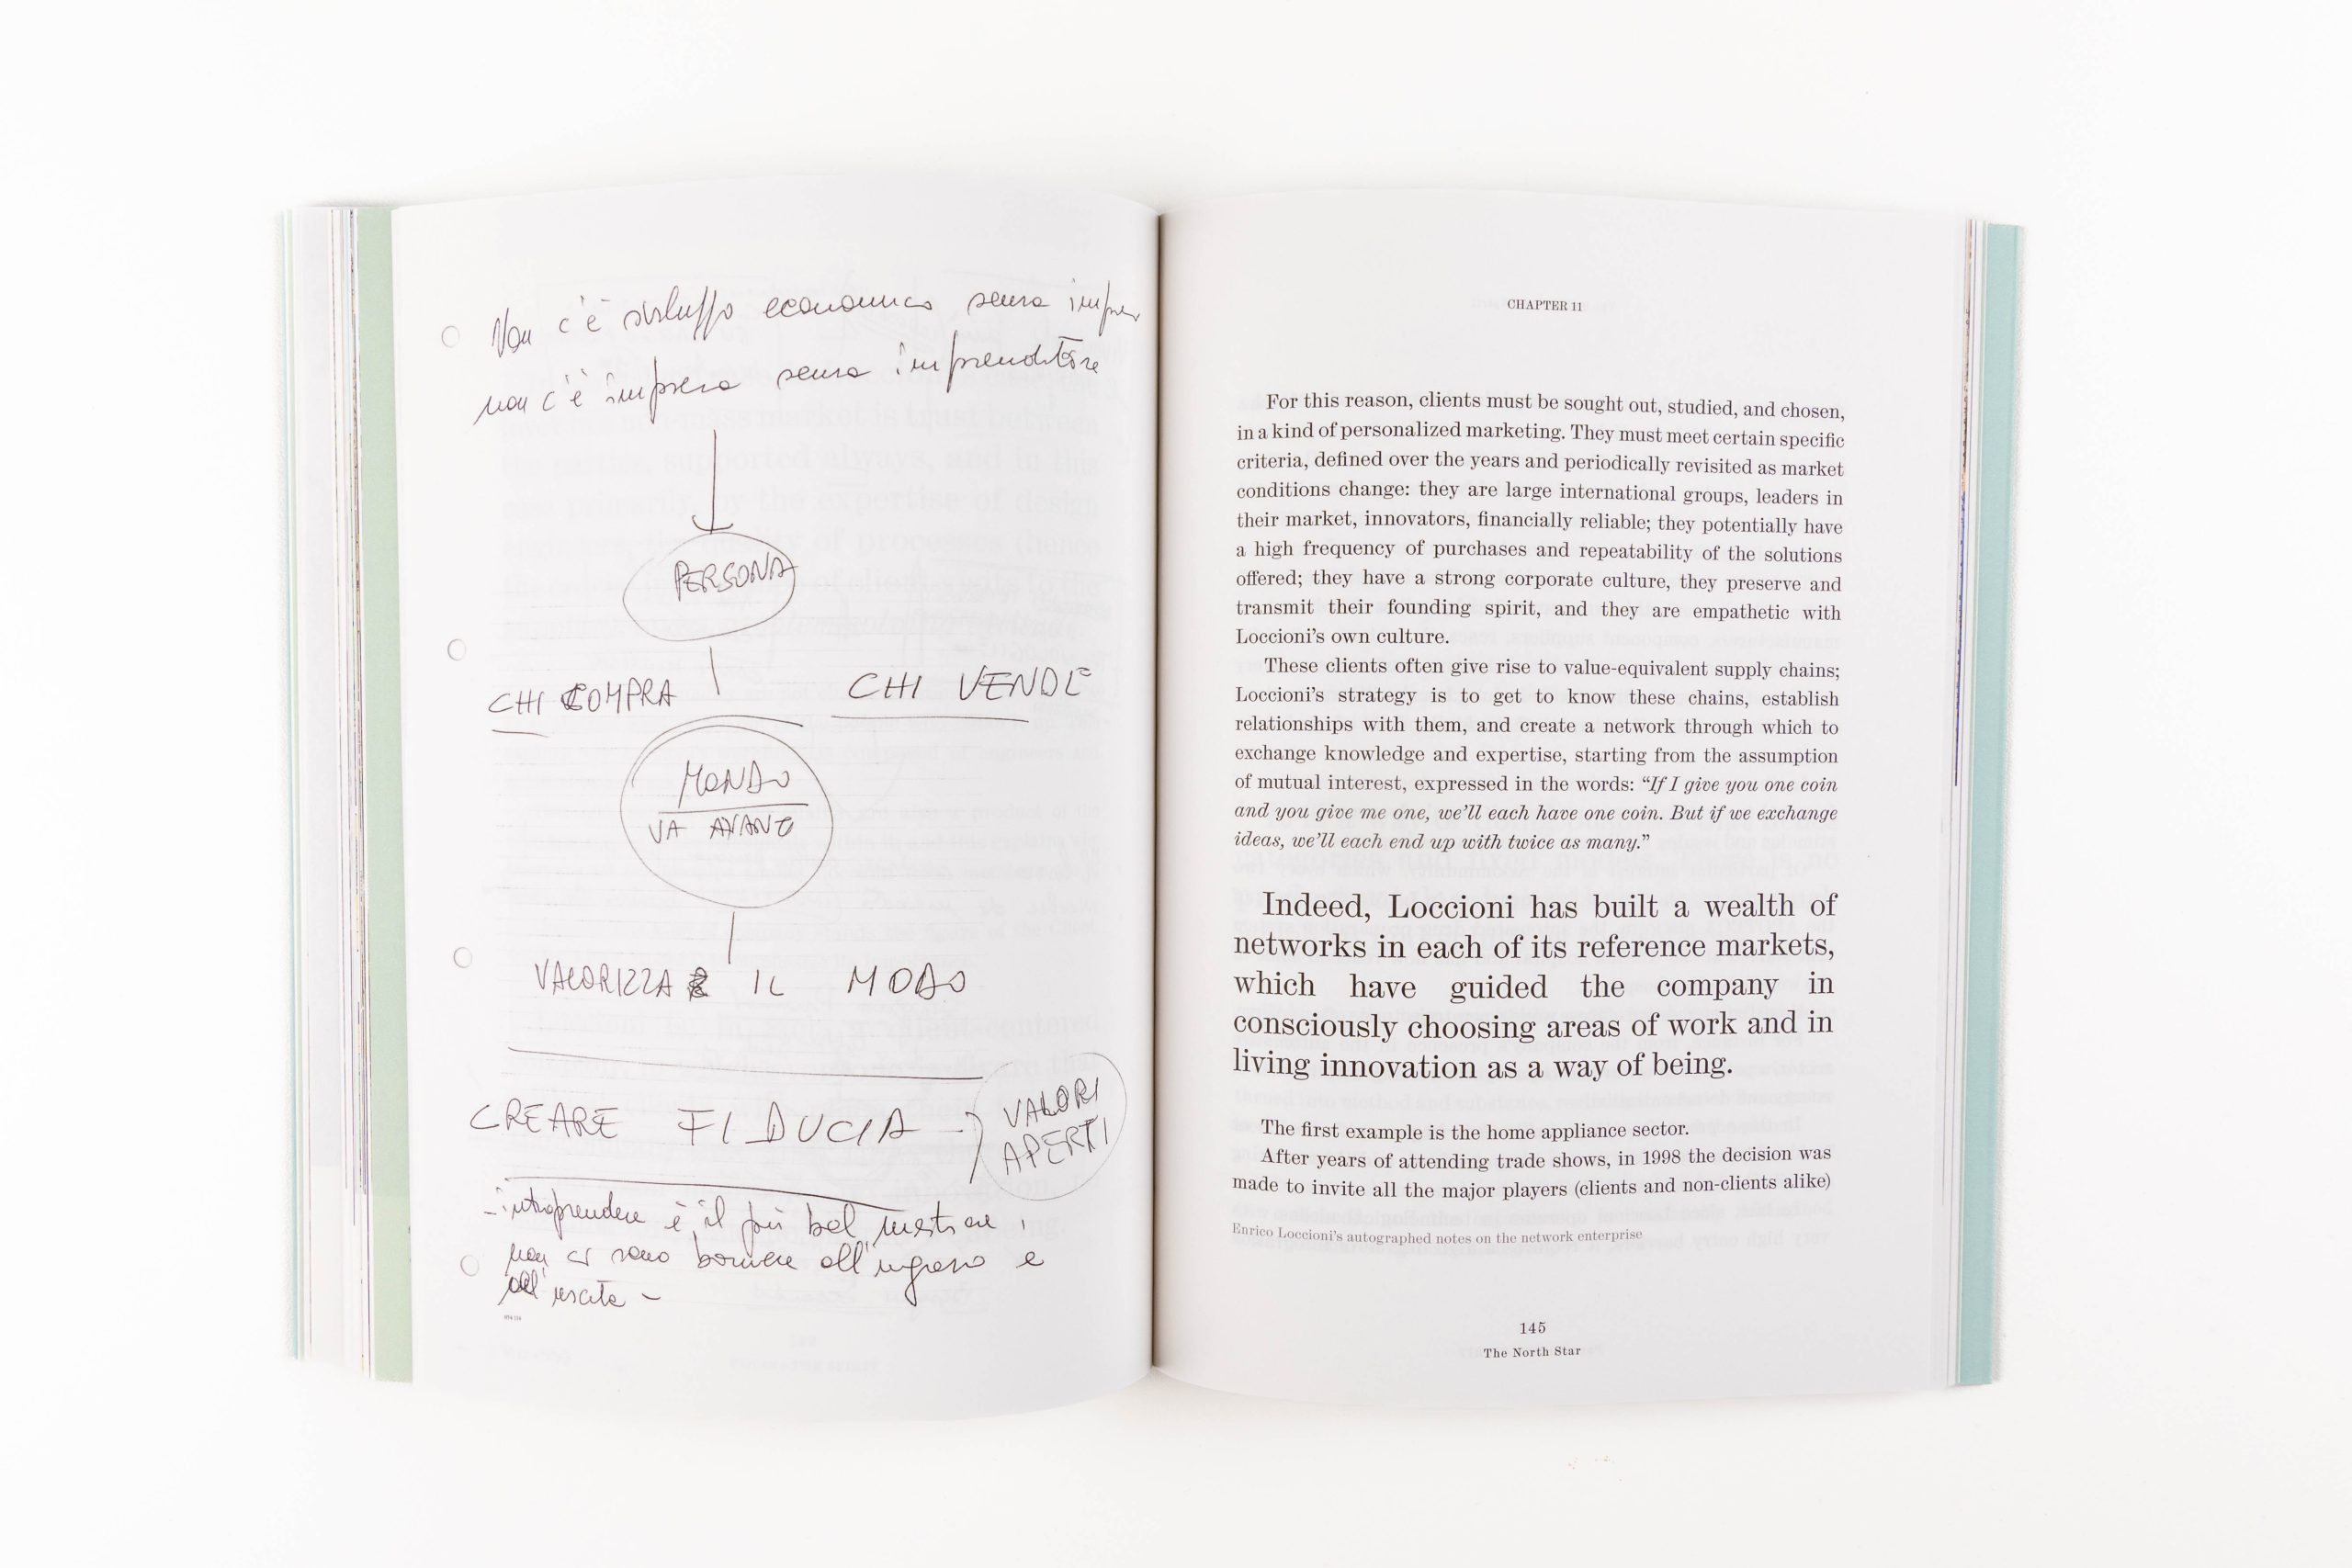 Non c'è sviluppo economico senza
non c'è impresa senza imprenditore
PERSONA
CHI COMPRA
CHI VENDE
MONDO
VA AVANTI
VALORIZZA IL MODO
CREARE FIDUCIA
VALORI
APERTI
- intraprendere è il più bel mestiere,
non ci sono barriere all'ingresso e
all'uscita -
CHAPTER 11
For this reason, clients must be sought out, studied, and chosen,
in a kind of personalized marketing. They must meet certain specific
criteria, defined over the years and periodically revisited as market
conditions change: they are large international groups, leaders in
their market, innovators, financially reliable; they potentially have
a high frequency of purchases and repeatability of the solutions
offered; they have a strong corporate culture, they preserve and
transmit their founding spirit, and they are empathetic with
Loccioni's own culture.
These clients often give rise to value-equivalent supply chains;
Loccioni's strategy is to get to know these chains, establish
relationships with them, and create a network through which to
exchange knowledge and expertise, starting from the assumption
of mutual interest, expressed in the words: “If I give you one coin
and you give me one, we'll each have one coin. But if we exchange
ideas, we'll each end up with twice as many.”
Indeed, Loccioni has built a wealth of
networks in each of its reference markets,
which have guided the company in
consciously choosing areas of work and in
living innovation as a way of being.
The first example is the home appliance sector.
After years of attending trade shows, in 1998 the decision was
made to invite all the major players (clients and non-clients alike)
Enrico Loccioni's autographed notes on the network enterprise
145
The North Star